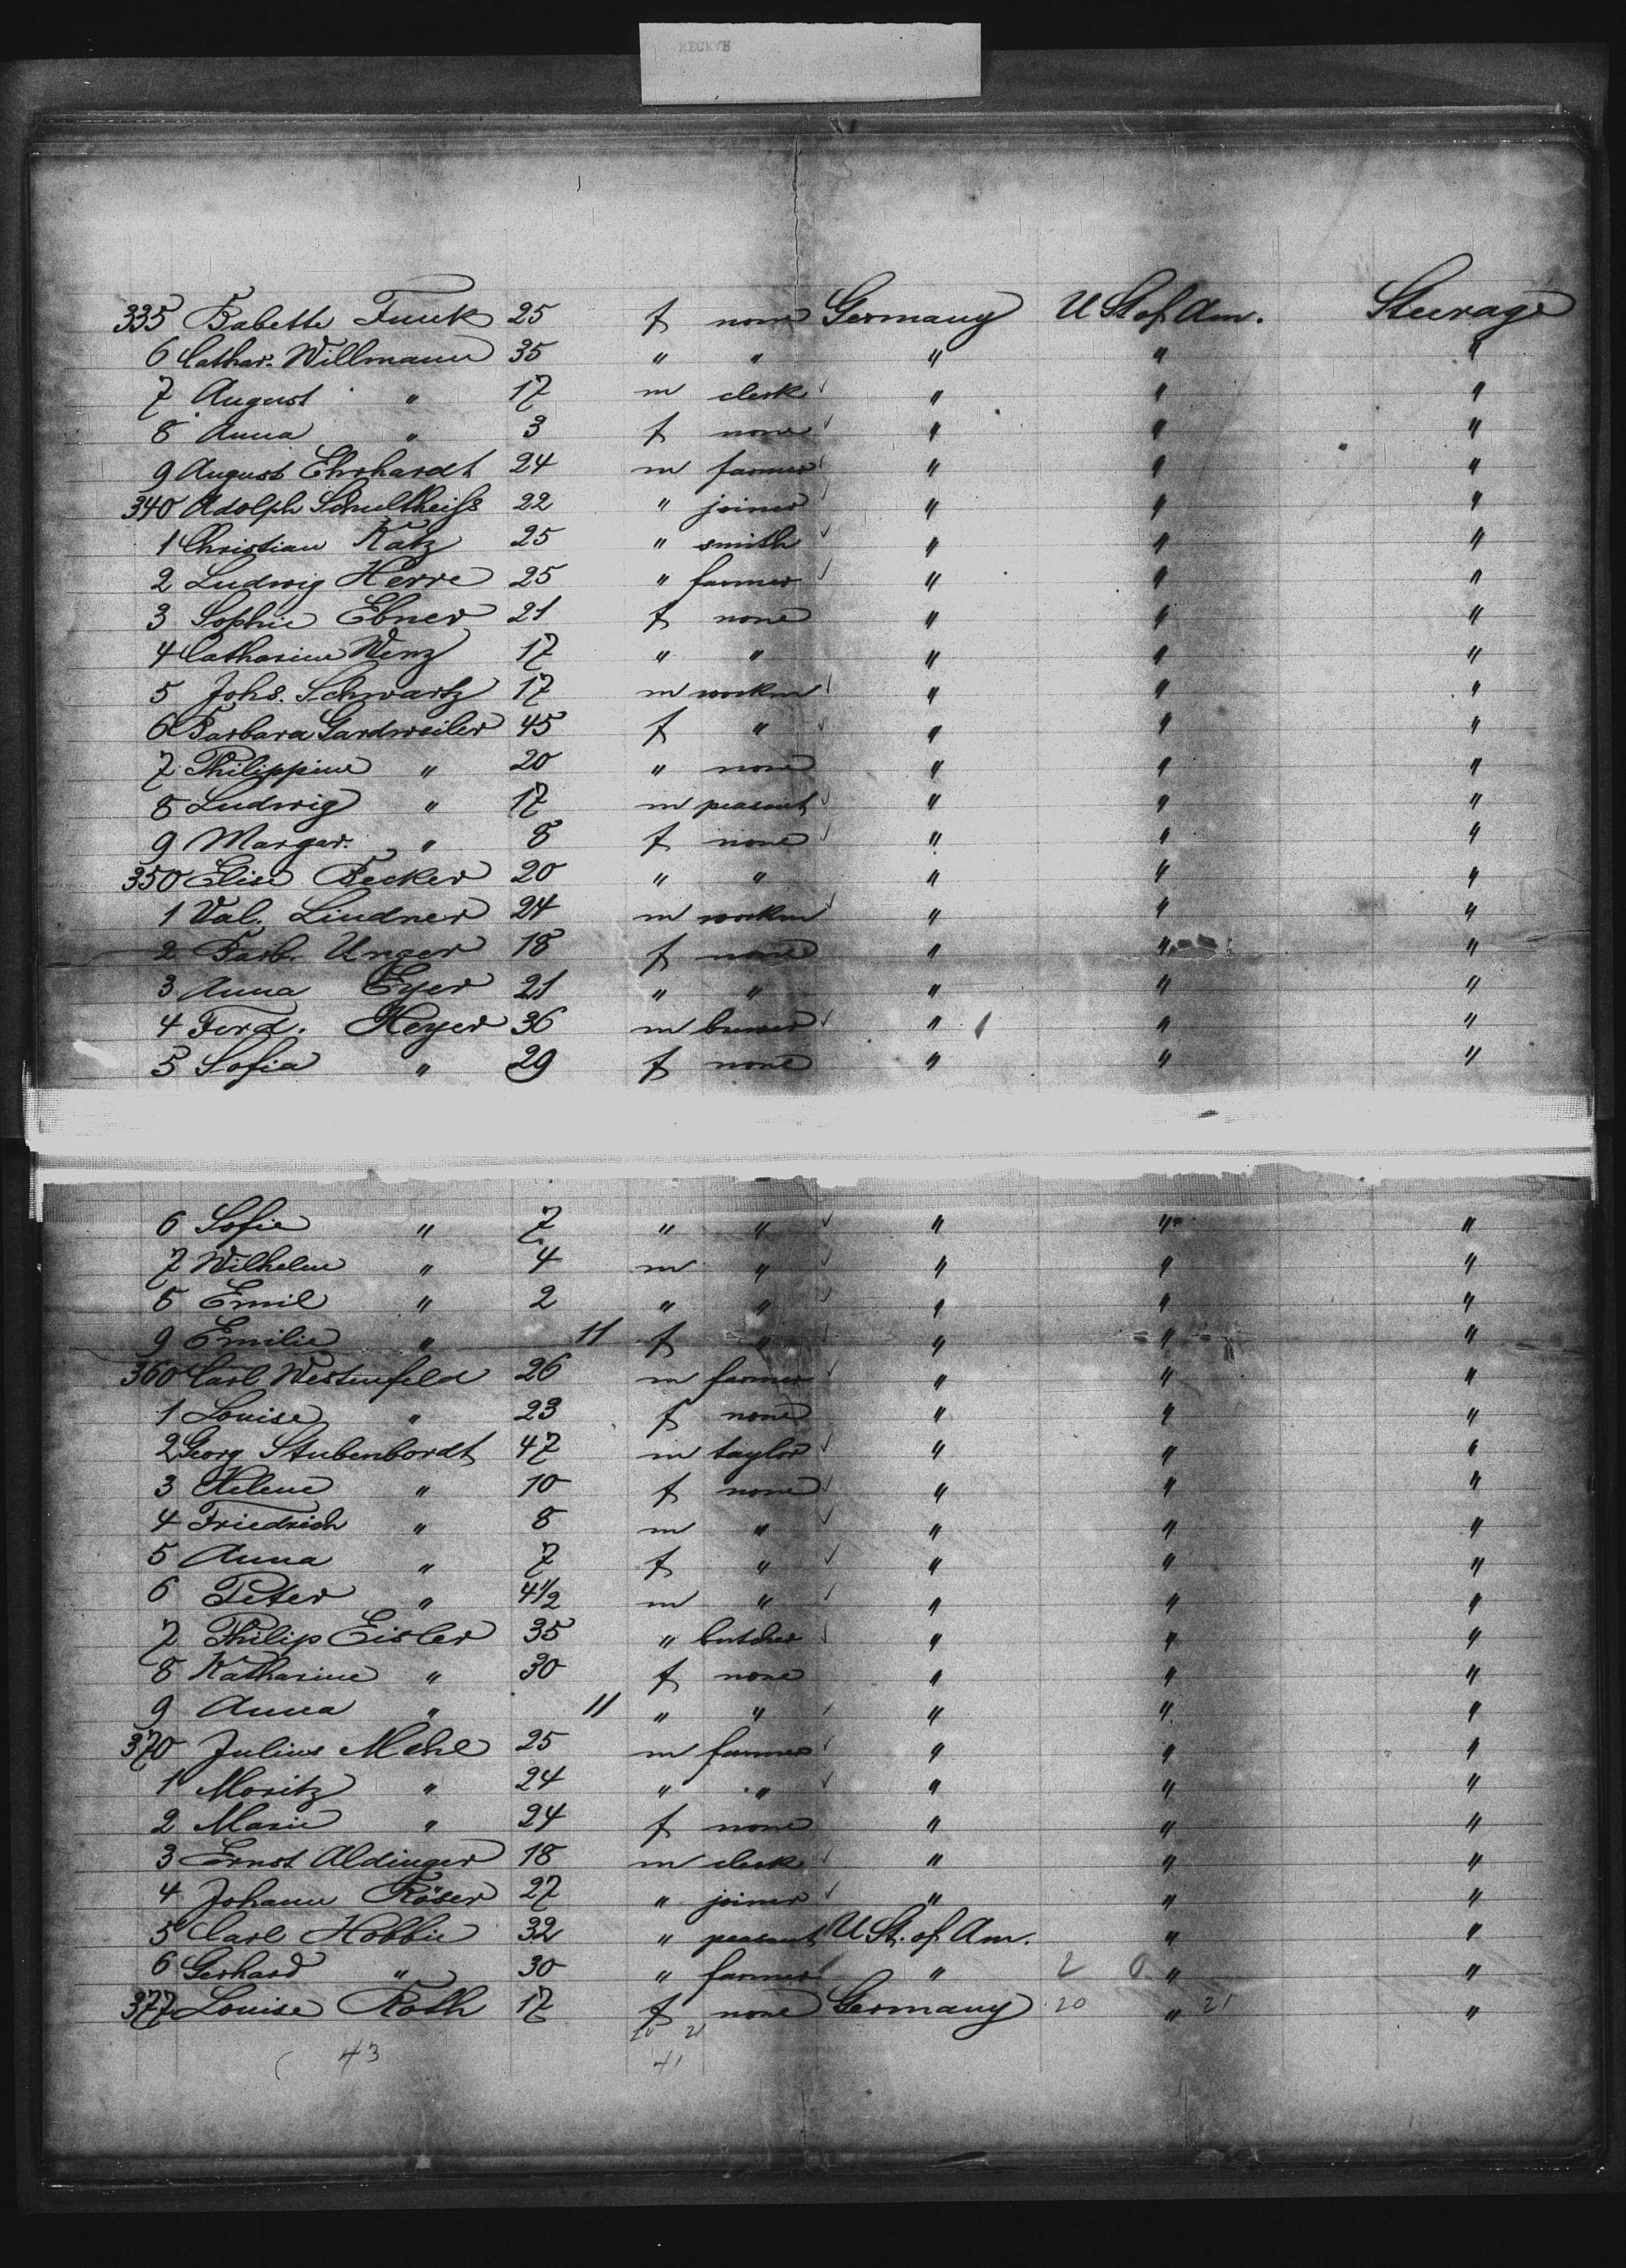 335 Babette Funk 25 f none Germany U St of Am. Steerage
6 Cathar. Willmann 35 " " " " "
7 August " 17 m clerk " " "
8 Anna " 3 f none " " "
9 August Ehrhardt 24 m farmer " " "
340 Adolph Schultheiss 22 " joiner " " "
1 Christian Katz 25 " smith " " "
2 Ludwig Herre 25 " farmer " " "
3 Sophie Ebner 21 f none " " "
4 Catharine Wenz 17 " " " " "
5 Johs. Schwartz 17 m workm " " "
6 Barbara Gardweiler 45 f " " " "
7 Philippine " 20 " none " " "
8 Ludwig " 17 m peasant " " "
9 Margar. " 8 f none " " "
350 Elise Becker 20 " " " " "
1 Val. Lindner 24 m workm " " "
2 Barb. Unger 18 f none " " "
3 Anna Eyer 21 " " " " "
4 Ferd. Heyer 36 m brewer " " "
5 Sofia " 29 f none " " "
6 Sofie " 7 " " " " "
7 Wilhelm " 4 m " " " "
8 Emil " 2 " " " " "
9 Emilie " 11 f " " " "
360 Carl Westenfeld 26 m farmer " " "
1 Louise " 23 f none " " "
2 Georg Stubenbordt 47 m taylor " " "
3 Helene " 10 f none " " "
4 Friedrich " 8 m " " " "
5 Anna " 7 f " " " "
6 Peter " 4 1/2 m " " " "
7 Philip Eisler 35 " butcher " " "
8 Katharine " 30 f none " " "
9 Anna " 11 " " " " "
370 Julius Mehl 25 m farmer " " "
1 Moritz " 24 " " " " "
2 Marie " 24 f none " " "
3 Ernst Aldinger 18 m clerk " " "
4 Johann Röser 27 " joiner " " "
5 Carl Hobbie 32 " peasant U St. of Am. " "
6 Gerhard " 30 " farmer " 2 0 " "
377 Louise Roth 17 f none Germany 20 " 21 "
20 21
43 41